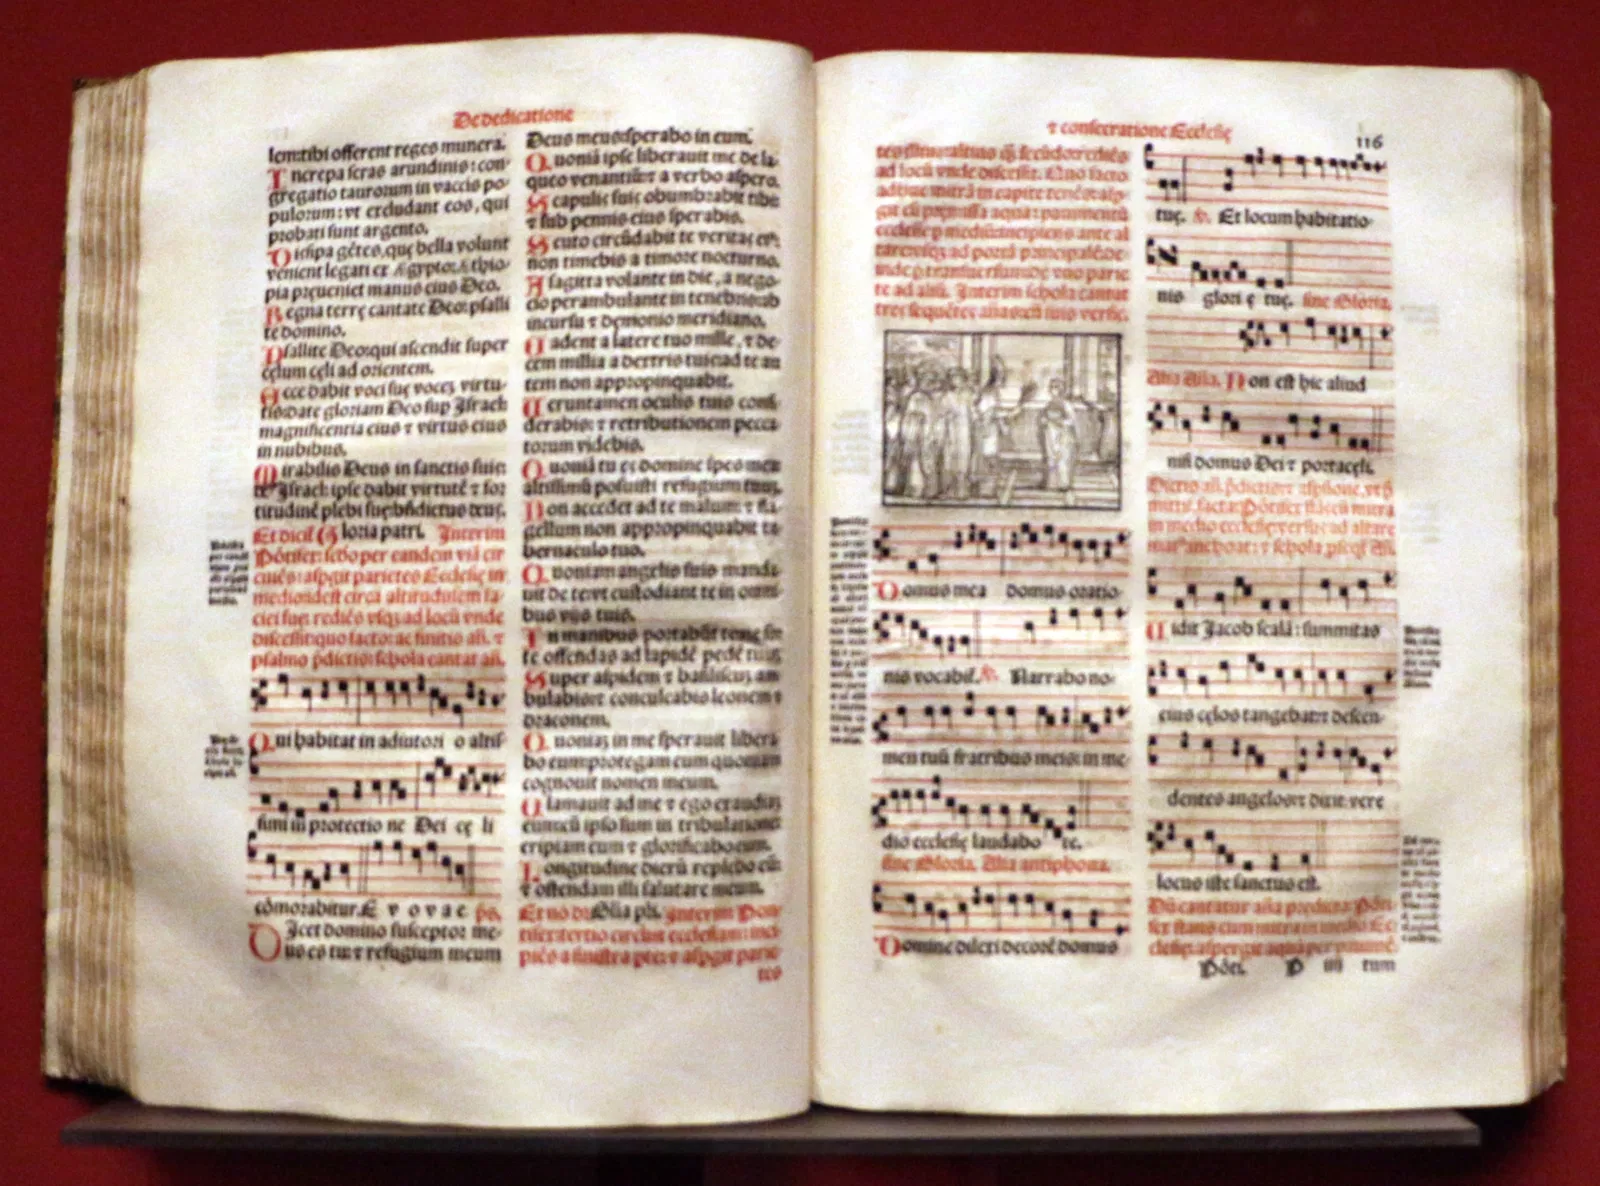 De dedicatione
lem:tibi offerent reges munera.
Increpa feras arundinis: con-
gregatio taurorum in vaccis po-
pulorum: vt excludant eos, qui
probati sunt argento.
Dissipa gẽtes, quę bella volunt
venient legati ex Ægypto: Æthio-
pia pręueniet manus eius Deo.
Regna terrę cantate Deo: psalli
te domino.
Psallite Deo: qui ascendit super
cęlum cęli ad orientem.
Ecce dabit voci suę vocẽ virtu-
tis: date gloriam Deo sup Israel:
magnificentia eius ⁊ virtus eius
in nubibus.
Mirabilis Deus in sanctis suis:
Israel: ipse dabit virtutẽ ⁊ for
titudinẽ plebi suę: bñdictus deus.
Et dicit Gloria patri. Interim
Põtifex: scďo per eandem viã cir
ciẽs: aspgit parietes Ecclesię in
circa altitudinem fa-
ciei suę: rediẽs vsq; ad locũ vnde
discessit: quo facto: ac finitis añ. ⁊
psalmo p̄dictis: schola cantat añ.
Qui habitat in adiutori o altis-
simi in protectio ne Dei cę li
cõmorabitur. E v o v a e ps.
Dicet domino susceptor me-
us es tu: ⁊ refugium meum
Deus meus: sperabo in eum.
Quoniã ipse liberauit me de la-
queo venantiũ: ⁊ a verbo aspero.
Scapulis suis obumbrabit tibi:
⁊ sub pennis eius sperabis.
Scuto circũdabit te veritas eiꝰ:
non timebis a timore nocturno.
A sagitta volante in die, a nego-
cio perambulante in tenebris: ab
incursu ⁊ dęmonio meridiano.
Cadent a latere tuo mille, ⁊ de-
cem millia a dextris tuis: ad te au
tem non appropinquabit.
Veruntamen oculis tuis consi-
derabis: ⁊ retributionem pecca-
torum videbis.
Quoniã tu es domine spes mea
altissimũ posuisti refugium tuum.
Non accedet ad te malum: ⁊ fla-
gellum non appropinquabit ta-
bernaculo tuo.
Quoniam angelis suis manda-
uit de te: vt custodiant te in omni-
bus vijs tuis.
In manibus portabũt te: ne for
te offendas ad lapidẽ pedẽ tuum.
Super aspidem ⁊ basiliscum am-
bulabis: ⁊ conculcabis leonem ⁊
draconem.
Quoniam in me sperauit libera-
bo eum: protegam eum quoniam
cognouit nomen meum.
Clamauit ad me ⁊ ego exaudiam
eum: cũ ipso sum in tribulatione:
eripiam eum ⁊ glorificabo eum.
Longitudine dierũ replebo eũ:
⁊ ostendam illi salutare meum.
Et nõ dr̃: Glia pr̃i. Interim Pon-
tifex: tertio circuit ecclesiam: inci
piẽs a sinistra pte: ⁊ aspgit parie
tes
⁊ consecratione Ecclesię
116
ad locũ vnde discessit. Quo facto
adhuc mitrã in capite tenẽs: asp-
ecclesię p mediũ: incipiens ante al
tare vsq; ad portã principalẽ: de-
vno parie
te ad aliũ. Interim schola cantat
tres sequẽtes
Domus mea domus oratio-
nis vocabit̃. ℣. Narrabo no-
men tuũ fratribus meis: in me
dio ecclesię laudabo te.
sine Gloria. Alia antiphona.
Domine dilexi decorẽ domus
tuę. ℣. Et locum habitatio-
nis glori ę tuę. sine Gloria.
Alia Aña. Non est hic aliud
nisi domus Dei ⁊ porta cęli.
in medio ecclesię, versus ad altare
Vidit Jacob scalã: summitas
eius cęlos tangebat: ⁊ descen-
dentes angelos: ⁊ dixit: vere
locus iste sanctus est.
Dũ cantatur aña predicta: Põti-
fex stans cum mitra in medio Ec
clesię: aspergit aquã per pauimẽ-
Põti. P iiij tum